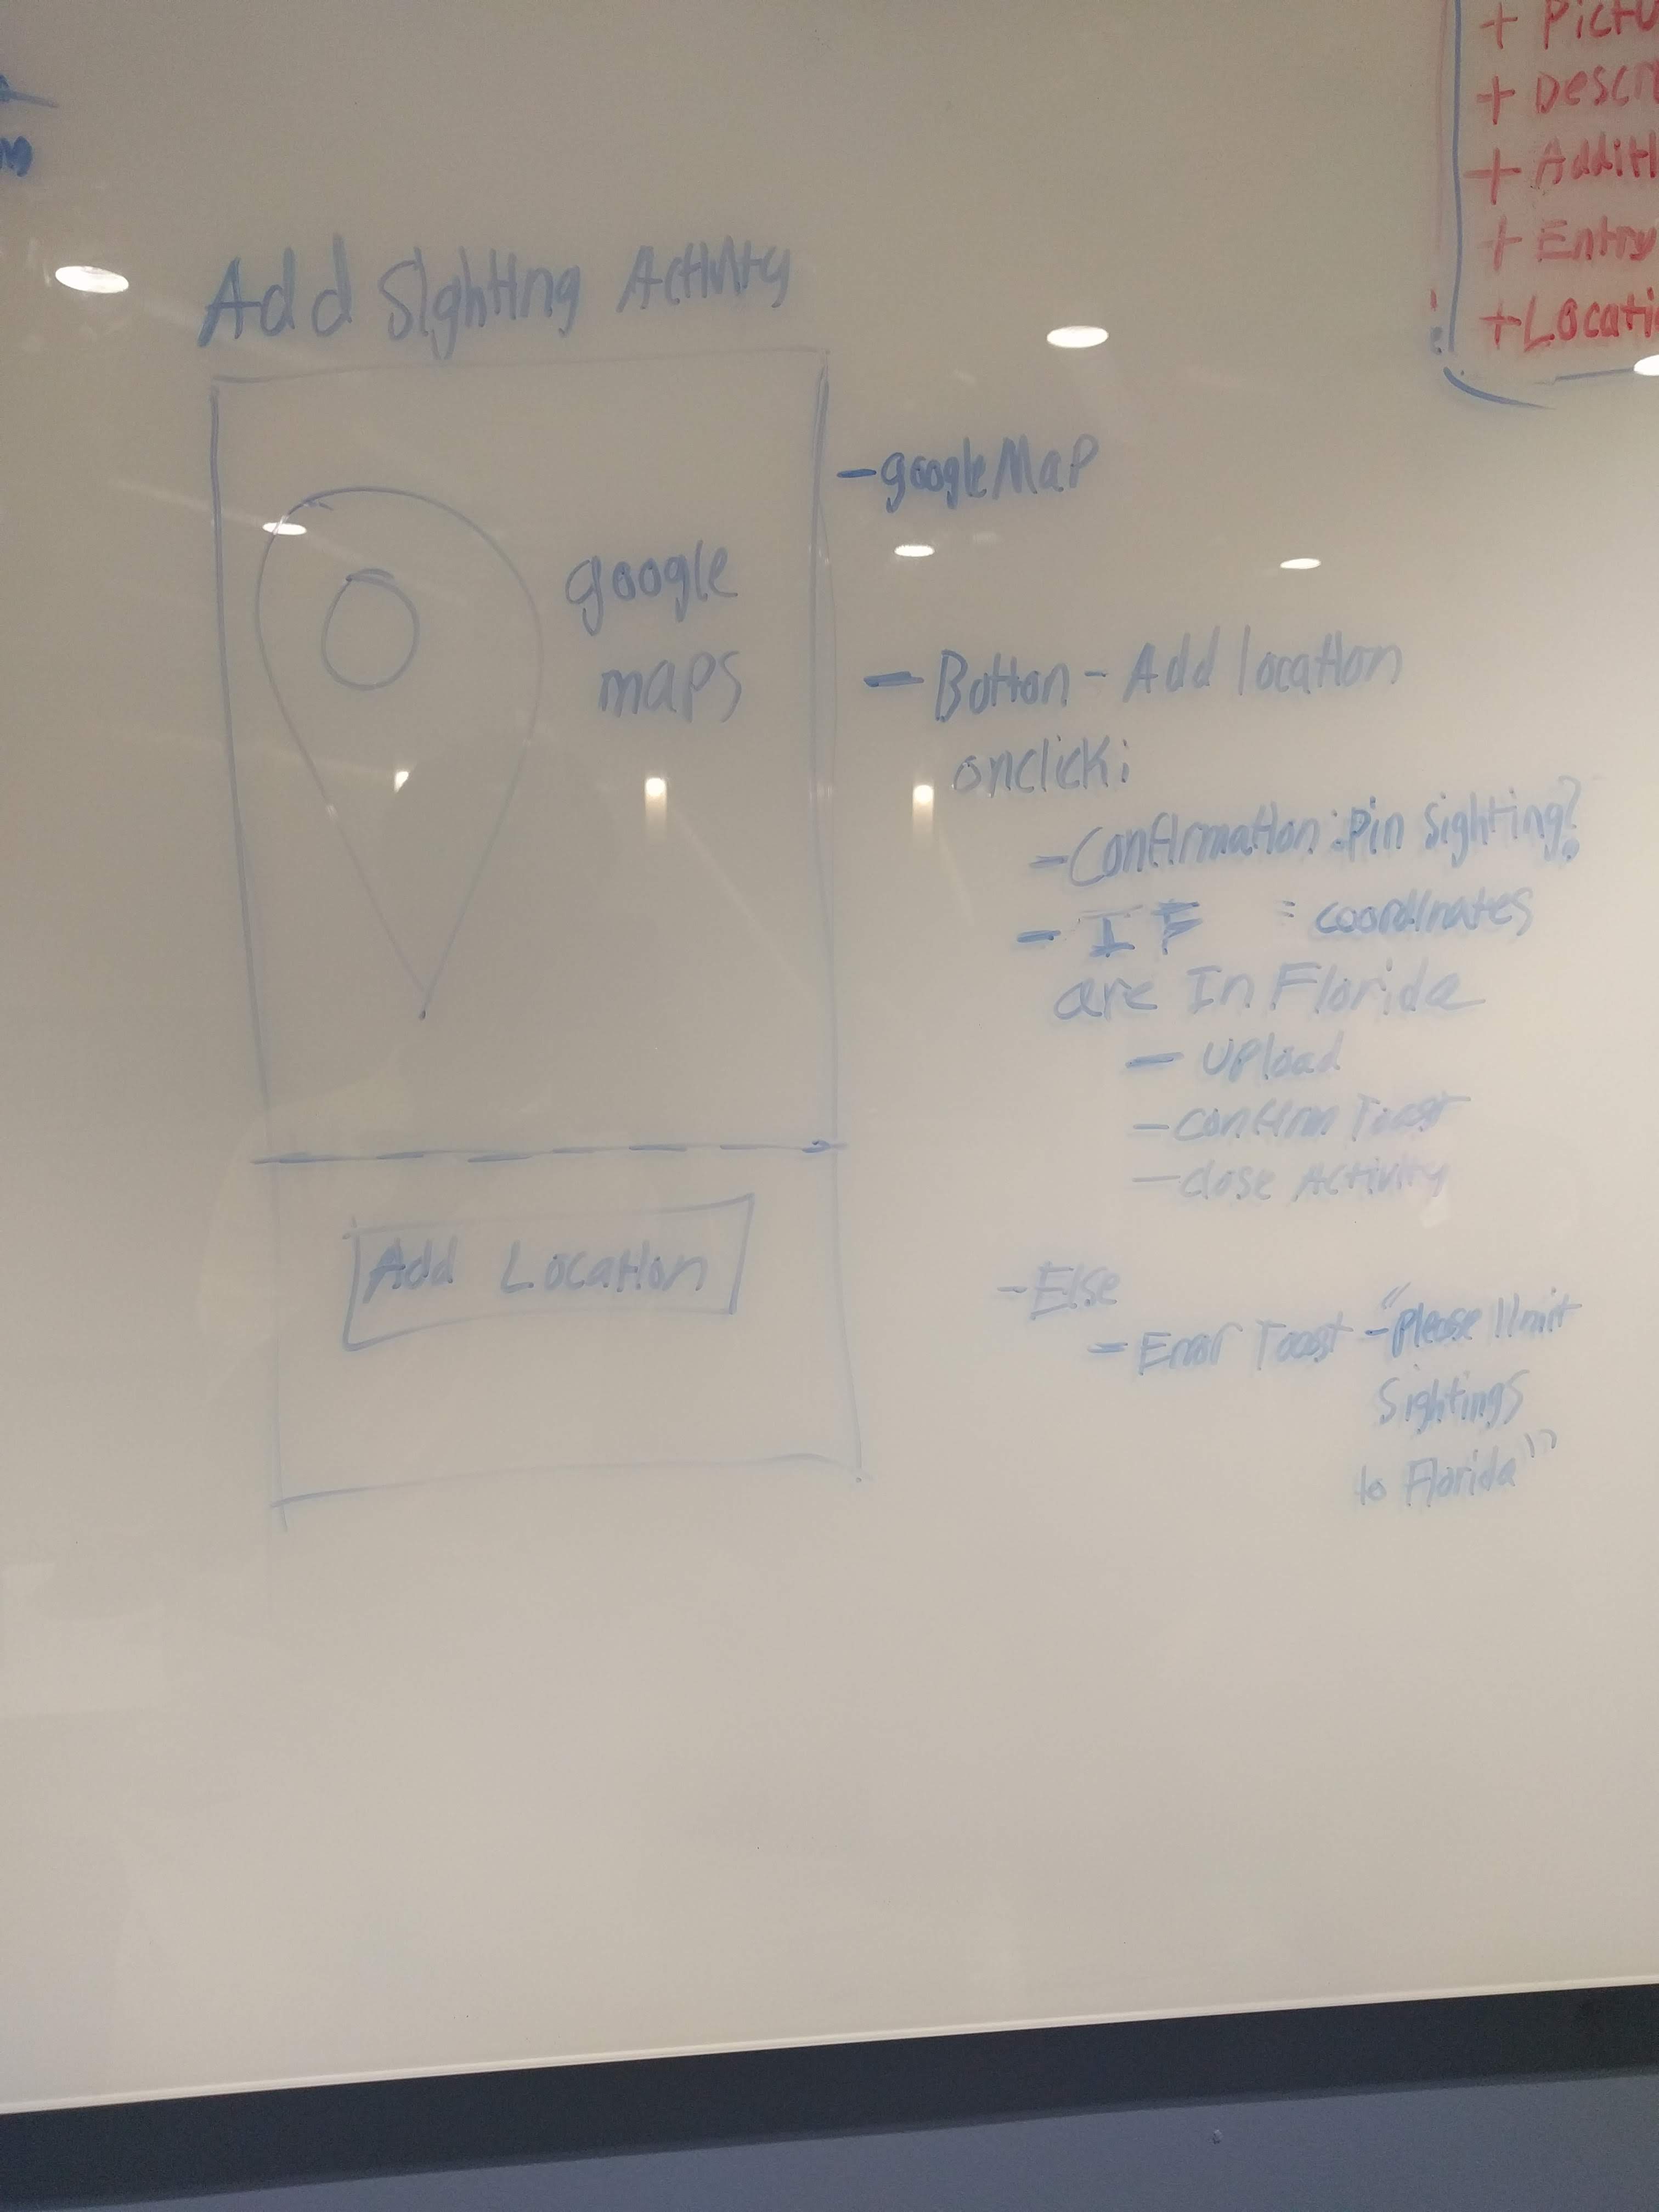 + Pictu
+ Descri
+ Additi
+ Entry
+ Locati
Add Sighting Activity
google
maps
Add Location
- googleMap
- Button - Add location
onclick:
- Confirmation: Pin Sighting?
- IF = coordinates
are In Florida
- Upload
- confirm Toast
- close Activity
- Else
- Error Toast - "Please limit
Sightings
to Florida"